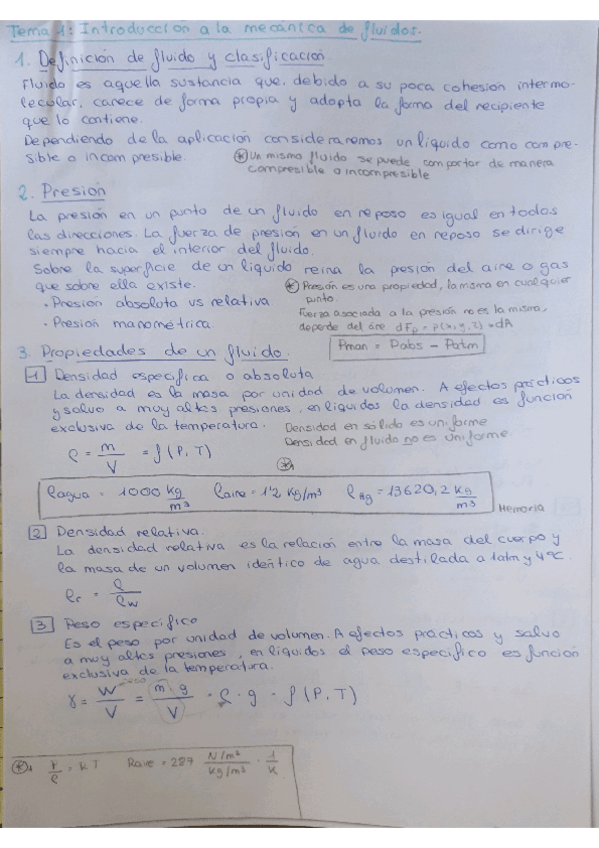 Tema 1: Introducción a la mecánica de fluidos.
1. Definición de fluido y clasificación
Fluido es aquella sustancia que, debido a su poca cohesión intermo-
lecular, carece de forma propia y adopta la forma del recipiente
que lo contiene.
Dependiendo de la aplicación consideraremos un líquido como compre-
sible o incompresible.
⊛ Un mismo fluido se puede comportar de manera
compresible o incompresible
2. Presión
La presión en un punto de un fluido en reposo es igual en todas
las direcciones. La fuerza de presión en un fluido en reposo se dirige
siempre hacia el interior del fluido.
Sobre la superficie de un líquido reina la presión del aire o gas
que sobre ella existe.
⊛ Presión es una propiedad, la misma en cualquier
punto.
· Presión absoluta vs relativa
Fuerza asociada a la presión no es la misma,
· Presión manométrica.
depende del área dFp = p(x,y,z) · dA
Pman = Pabs - Patm
3. Propiedades de un fluido.
1 Densidad específica o absoluta
La densidad es la masa por unidad de volumen. A efectos prácticos
y salvo a muy altas presiones, en líquidos la densidad es función
exclusiva de la temperatura.
Densidad en sólido es uniforme
Densidad en fluido no es uniforme.
ρ = m/V = f(P,T)
⊛
ρagua = 1000 kg/m³ ρaire = 1'2 kg/m³ ρHg = 13620,2 kg/m³
Memoria
2 Densidad relativa.
La densidad relativa es la relación entre la masa del cuerpo y
la masa de un volumen idéntico de agua destilada a 1atm y 4ºC.
ρr = ρ/ρw
3 Peso específico
Es el peso por unidad de volumen. A efectos prácticos y salvo
a muy altas presiones, en líquidos el peso específico es función
exclusiva de la temperatura.
γ = W/V = m·g/V = ρ·g = f(P,T)
⊛: P/ρ = RT Raire = 287 N/m²/kg/m³ · 1/K